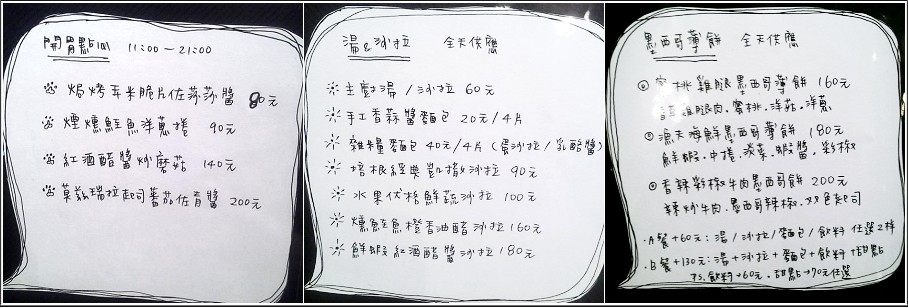 開胃點心 11:00~21:00
焗烤玉米脆片佐莎莎醬 80元
煙燻鮭魚洋蔥捲 90元
紅酒醋醬炒蘑菇 140元
莫茲瑞拉起司蕃茄佐青醬 200元
湯&沙拉 全天供應
主廚湯/沙拉 60元
手工香蒜醬麵包 20元/4片
雜糧麵包 40元/4片(蛋沙拉/乳酪醬)
培根經典凱撒沙拉 90元
水果優格鮮蔬沙拉 100元
燻鮭魚橙香油醋沙拉 160元
鮮蝦紅酒醋醬沙拉 180元
墨西哥薄餅 全天供應
蜜桃雞腿墨西哥薄餅 160元
雞腿肉.蜜桃.洋菇.洋蔥
漁夫海鮮墨西哥薄餅 180元
鮮蝦.中捲.淡菜.蝦醬.彩椒
香辣彩椒牛肉墨西哥餅 200元
辣炒牛肉.墨西哥辣椒.双色起司
.A餐+60元:湯/沙拉/麵包/飲料 任選2樣
.B餐+130元:湯+沙拉+麵包+飲料+甜點
P.S.飲料→60元.甜點→70元任選